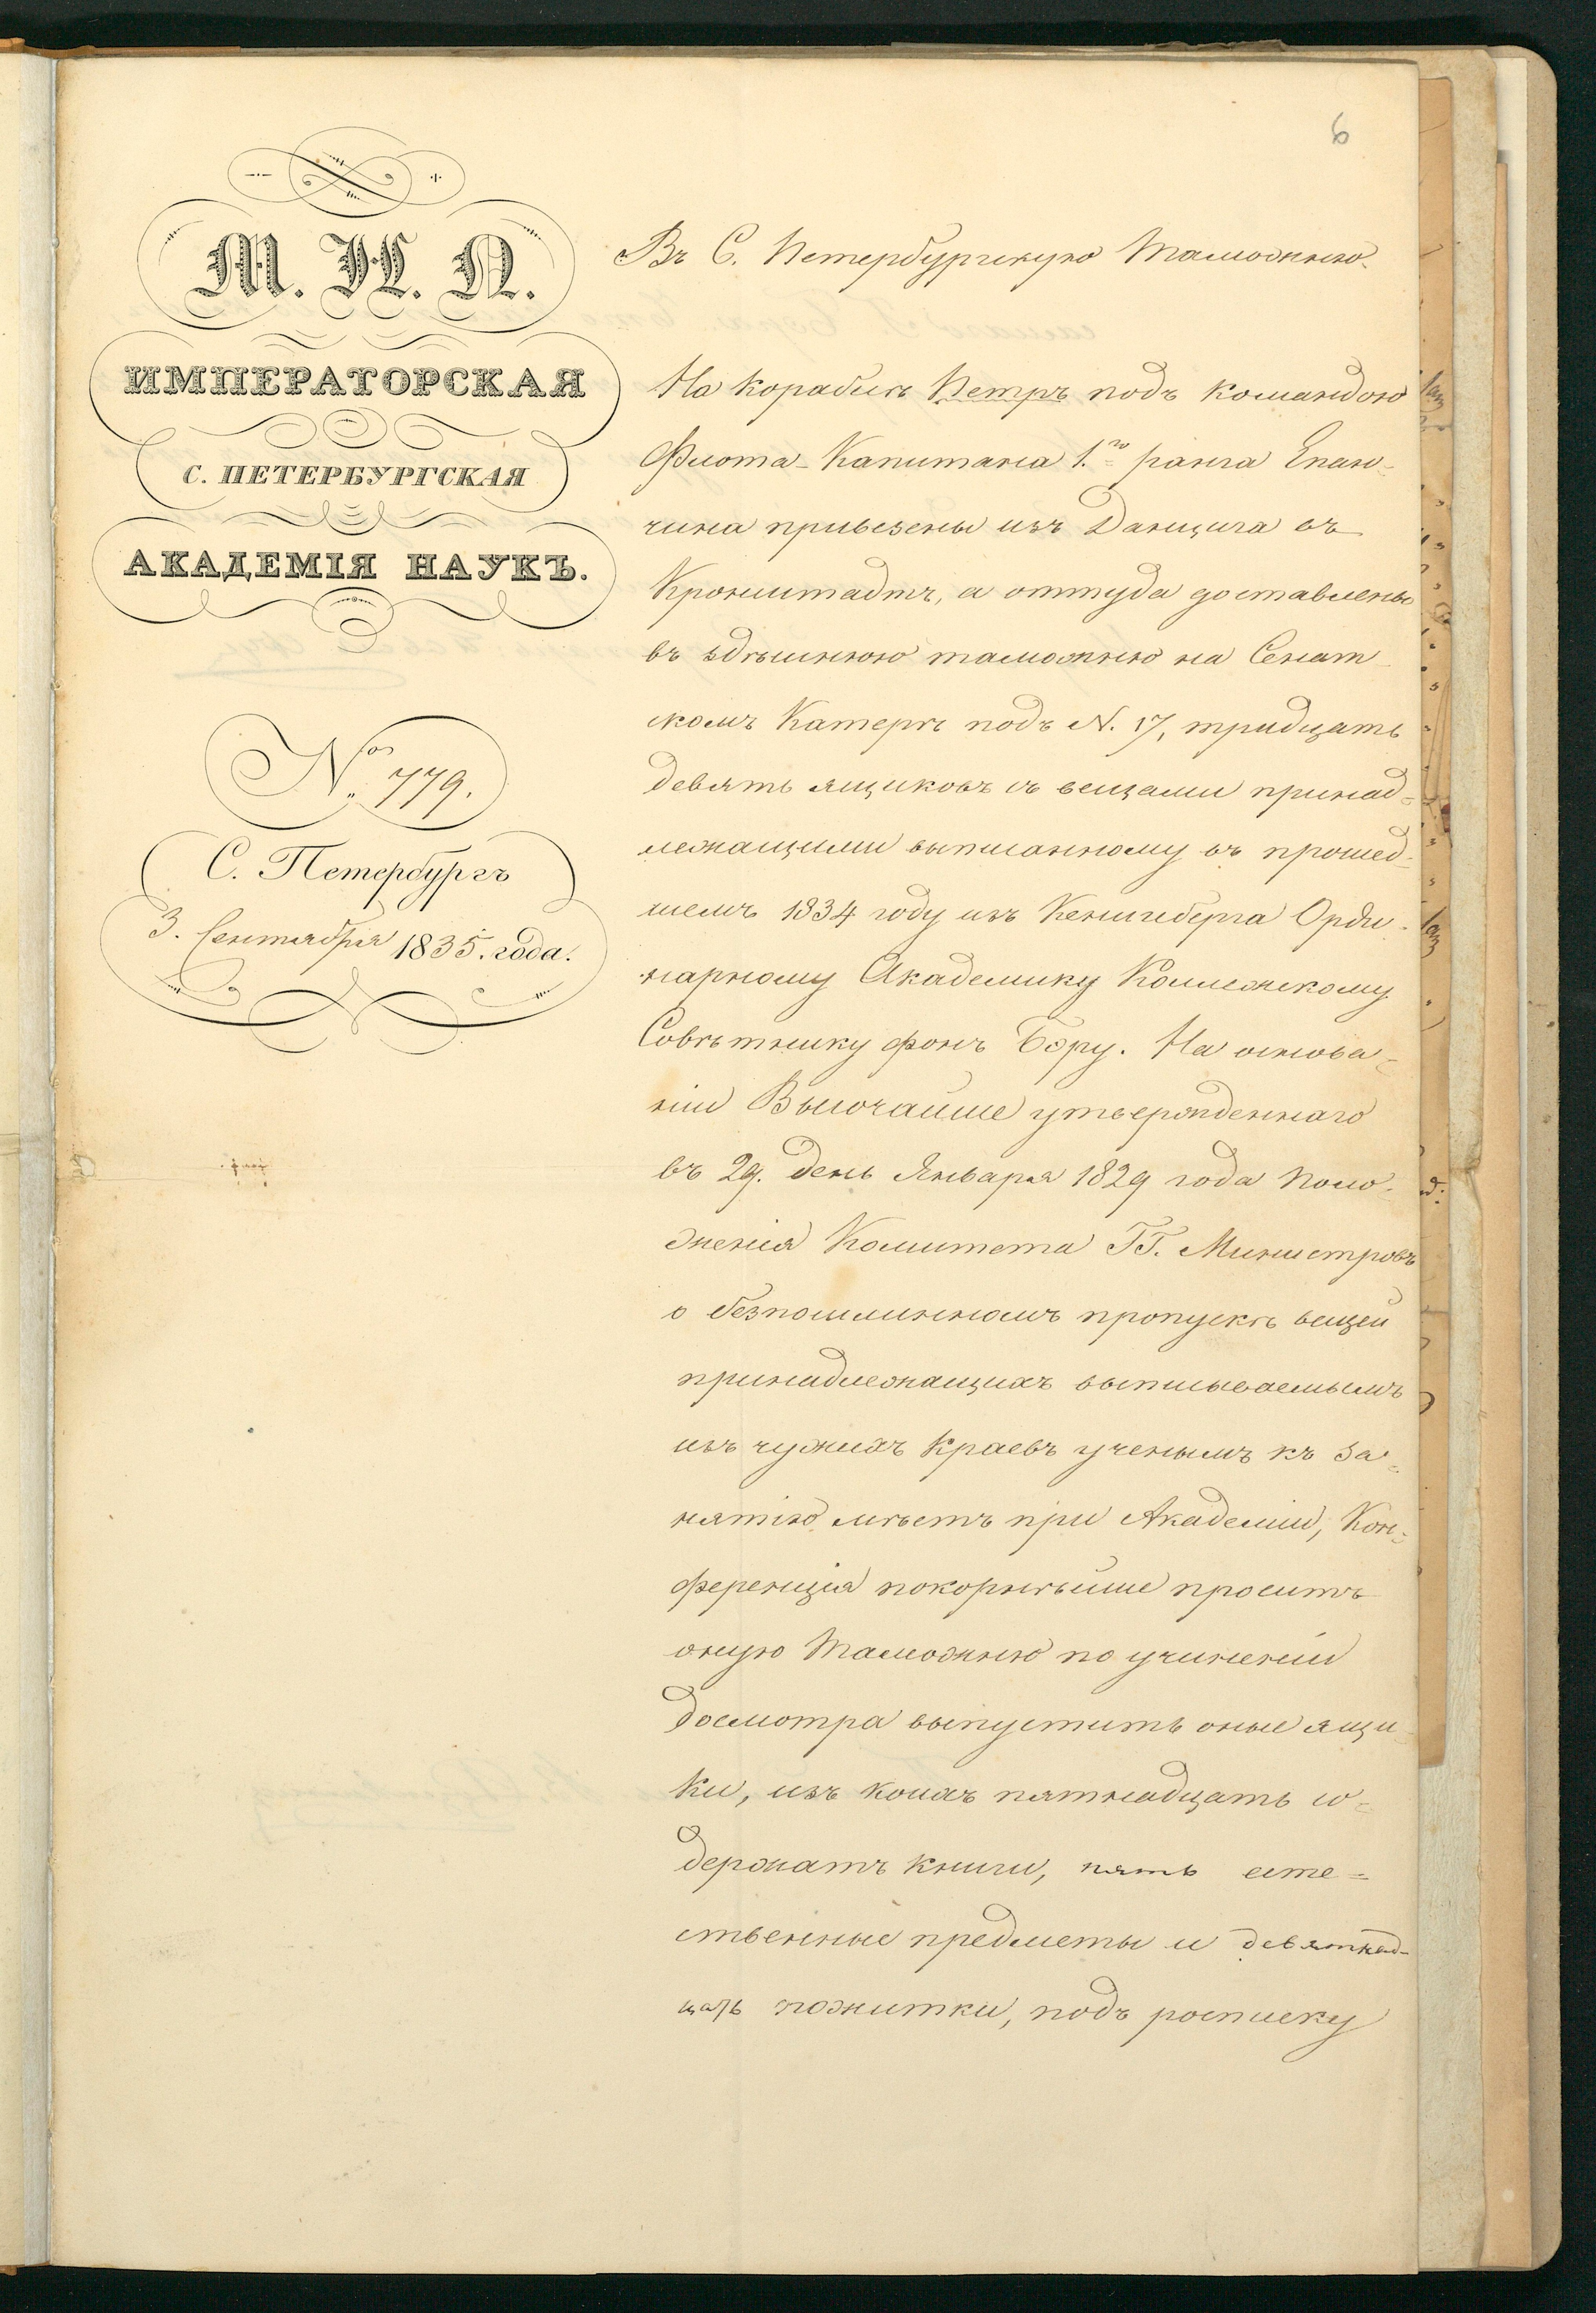 6
М. Н. П.
ИМПЕРАТОРСКАЯ
С. ПЕТЕРБУРГСКАЯ
АКАДЕМІЯ НАУКЪ.
№ 779.
С. Петербургъ
3. Сентября 1835. года.
Въ С. Петербургскую Таможню.
На корабле Петръ подъ командою
Флота-Капитана 1.го ранга Епан-
чина привезены изъ Данцига въ
Кронштадтъ, а оттуда доставлены
въ здѣшнюю таможню на Сенат
скомъ Катерѣ подъ N. 17, тридцать
девять ящиковъ съ вещами принад-
лежащими выписанному въ прошед-
шемъ 1834 году изъ Кенигсберга Орди-
нарному Академику Коллежскому
Совѣтнику фонъ Бэру. На основа-
ніи Высочайше утвержденнаго
въ 29. день Января 1829 года Поло-
женія Комитета ГГ. Министровъ
о безпошлинномъ пропускѣ вещей
принадлежащихъ выписываемымъ
изъ чужихъ краевъ ученымъ къ за-
нятію мѣстъ при Академіи, Кон-
ференція покорнѣйше проситъ
оную Таможню по учиненіи
досмотра выпустить оные ящи
ки, изъ коихъ пятнадцать со-
держатъ книги, пять есте-
ственные предметы и девятнад-
цать пожитки, подъ росписку